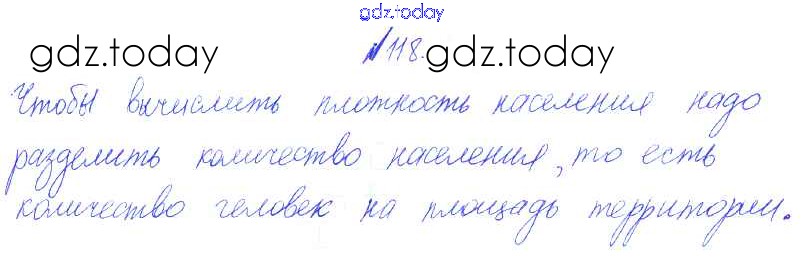 gdz.today
gdz.today №118. gdz.today
Чтобы вычислить плотность населения надо
разделить количество населения, то есть
количество человек на площадь территории.